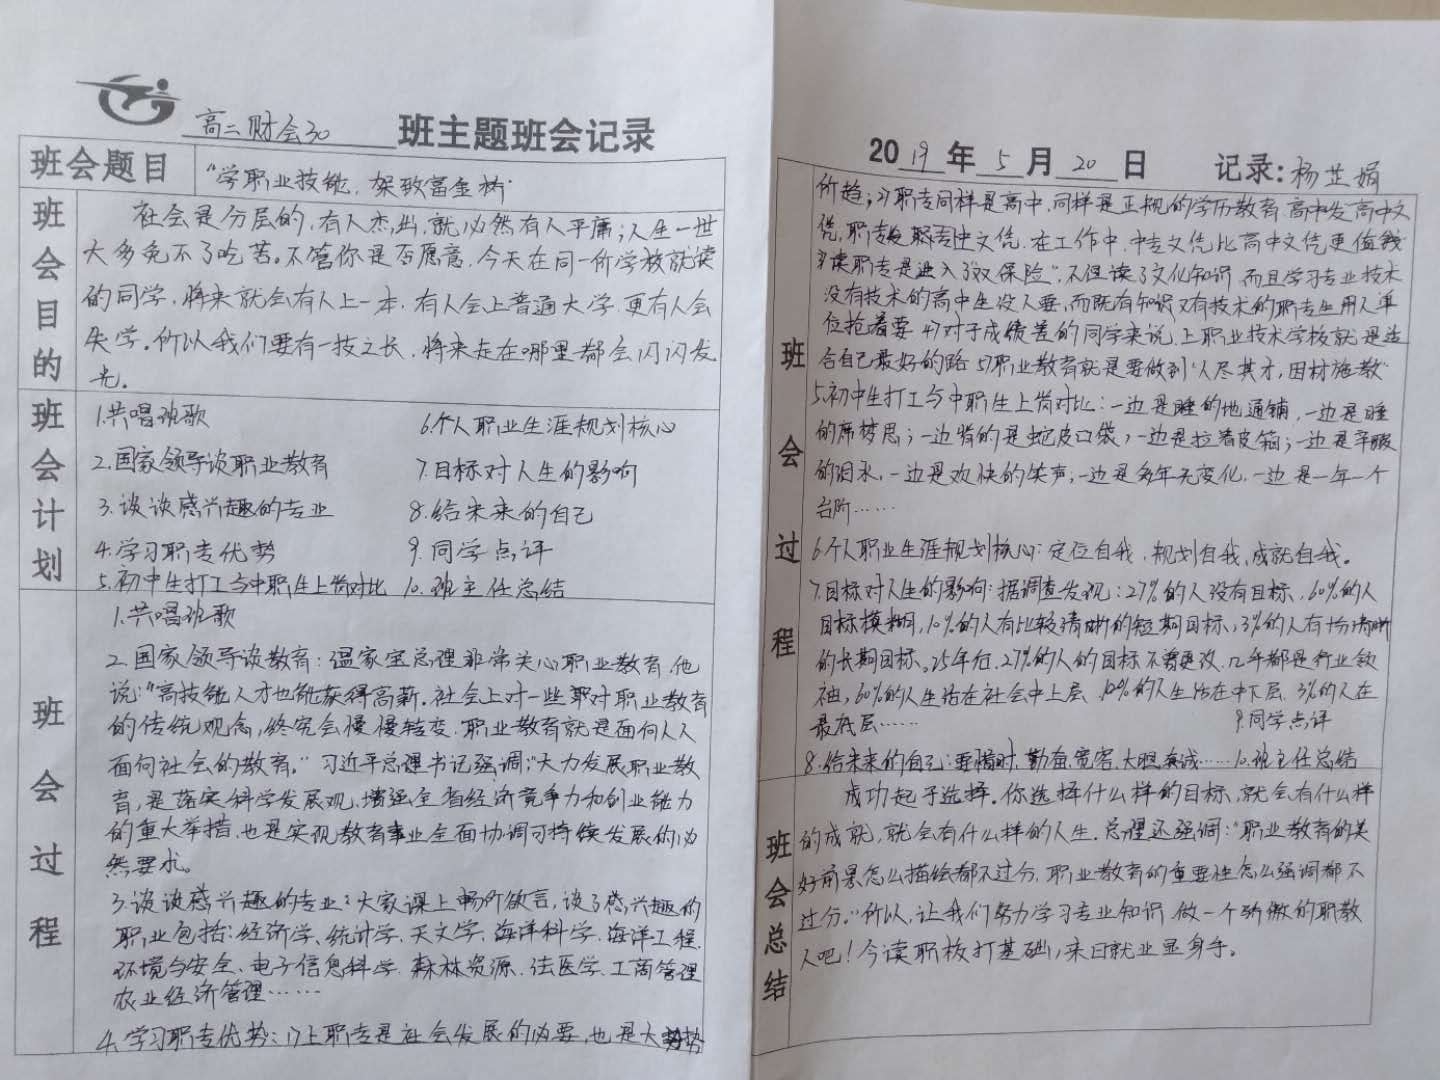 高二财会30 班主题班会记录
班会题目 "学职业技能,架致富金桥"
班会目的
社会是分层的,有人杰出,就必然有人平庸;人生一世
大多免不了吃苦。不管你是否愿意,今天在同一所学校就读
的同学,将来就会有人上一本,有人会上普通大学,更有人会
失学。所以我们要有一技之长,将来走在哪里都会闪闪发
光。
班会计划
1.共唱班歌 6.个人职业生涯规划核心
2.国家领导谈职业教育 7.目标对人生的影响
3.谈谈感兴趣的专业 8.给未来的自己
4.学习职专优势 9.同学点评
5.初中生打工与中职生上岗对比 10.班主任总结
班会过程
1.共唱班歌
2.国家领导谈教育:温家宝总理非常关心职业教育,他
说:"高技能人才也能获得高薪。社会上对一些鄙对职业教育
的传统观念,终究会慢慢转变,职业教育就是面向人人
面向社会的教育。"习近平总理书记强调:"大力发展职业教
育,是落实科学发展观,增强全省经济竞争力和创业能力
的重大举措,也是实现教育事业全面协调可持续发展的必
然要求。
3.谈谈感兴趣的专业:大家课上畅所欲言,谈了感兴趣的
职业包括:经济学、统计学、天文学、海洋科学、海洋工程、
环境与安全、电子信息科学、森林资源、法医学、工商管理
农业经济管理……
4.学习职专优势:1)上职专是社会发展的必要,也是大势
2019年5月20日 记录:杨芷娟
班会过程
所趋;2)职专同样是高中,同样是正规的学历教育,高中发高中文
凭,职专发职专中文凭,在工作中,中专文凭比高中文凭更值钱
3)读职专是进入了"双保险",不但读了文化知识,而且学习专业技术
没有技术的高中生没人要,而既有知识又有技术的职专生用人单
位抢着要 4)对于成绩差的同学来说,上职业技术学校就是适
合自己最好的路 5)职业教育就是要做到"人尽其才,因材施教"
5.初中生打工与中职生上岗对比:一边是睡的地通铺,一边是睡
的席梦思;一边背的是蛇皮口袋,一边是拉着皮箱;一边是辛酸
的泪水,一边是欢快的笑声;一边是多年无变化,一边是一年一个
台阶……
6.个人职业生涯规划核心:定位自我,规划自我,成就自我。
7.目标对人生的影响:据调查发现:27%的人没有目标,60%的人
目标模糊,10%的人有比较清晰的短期目标,3%的人有十分清晰
的长期目标。25年后,27%的人的目标不曾更改,几乎都是行业领
袖,60%的人生活在社会中上层,10%的人生活在中下层,3%的人在
最底层…… 9.同学点评
8.给未来的自己:要惜时,勤奋,宽容,大胆,真诚…… 10.班主任总结
班会总结
成功起于选择。你选择什么样的目标,就会有什么样
的成就,就会有什么样的人生。总理还强调:"职业教育的美
好前景怎么描绘都不过分,职业教育的重要性怎么强调都不
过分。"所以,让我们努力学习专业知识,做一个骄傲的职教
人吧!今读职校打基础,来日就业显身手。